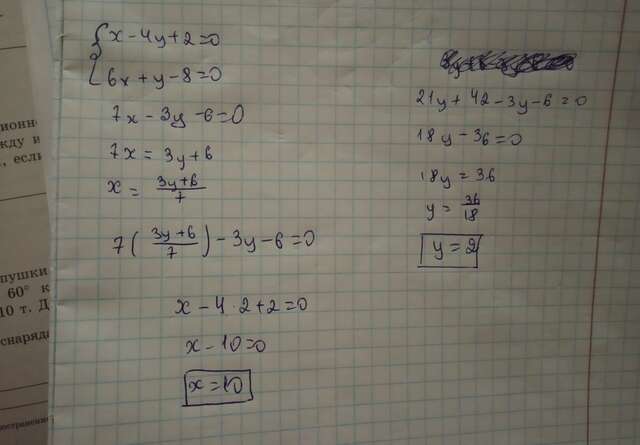 ионн
жду и
, если
x - 4y + 2 = 0
6x + y - 8 = 0
7x - 3y - 6 = 0
7x = 3y + 6
x = \frac{3y+6}{7}
7 ( \frac{3y+6}{7} ) - 3y - 6 = 0
21y + 42 - 3y - 6 = 0
18y - 36 = 0
18y = 36
y = \frac{36}{18}
y = 2
x - 4 · 2 + 2 = 0
x - 10 = 0
x = 10
пушки
60° к
10 т. Д
снаряда